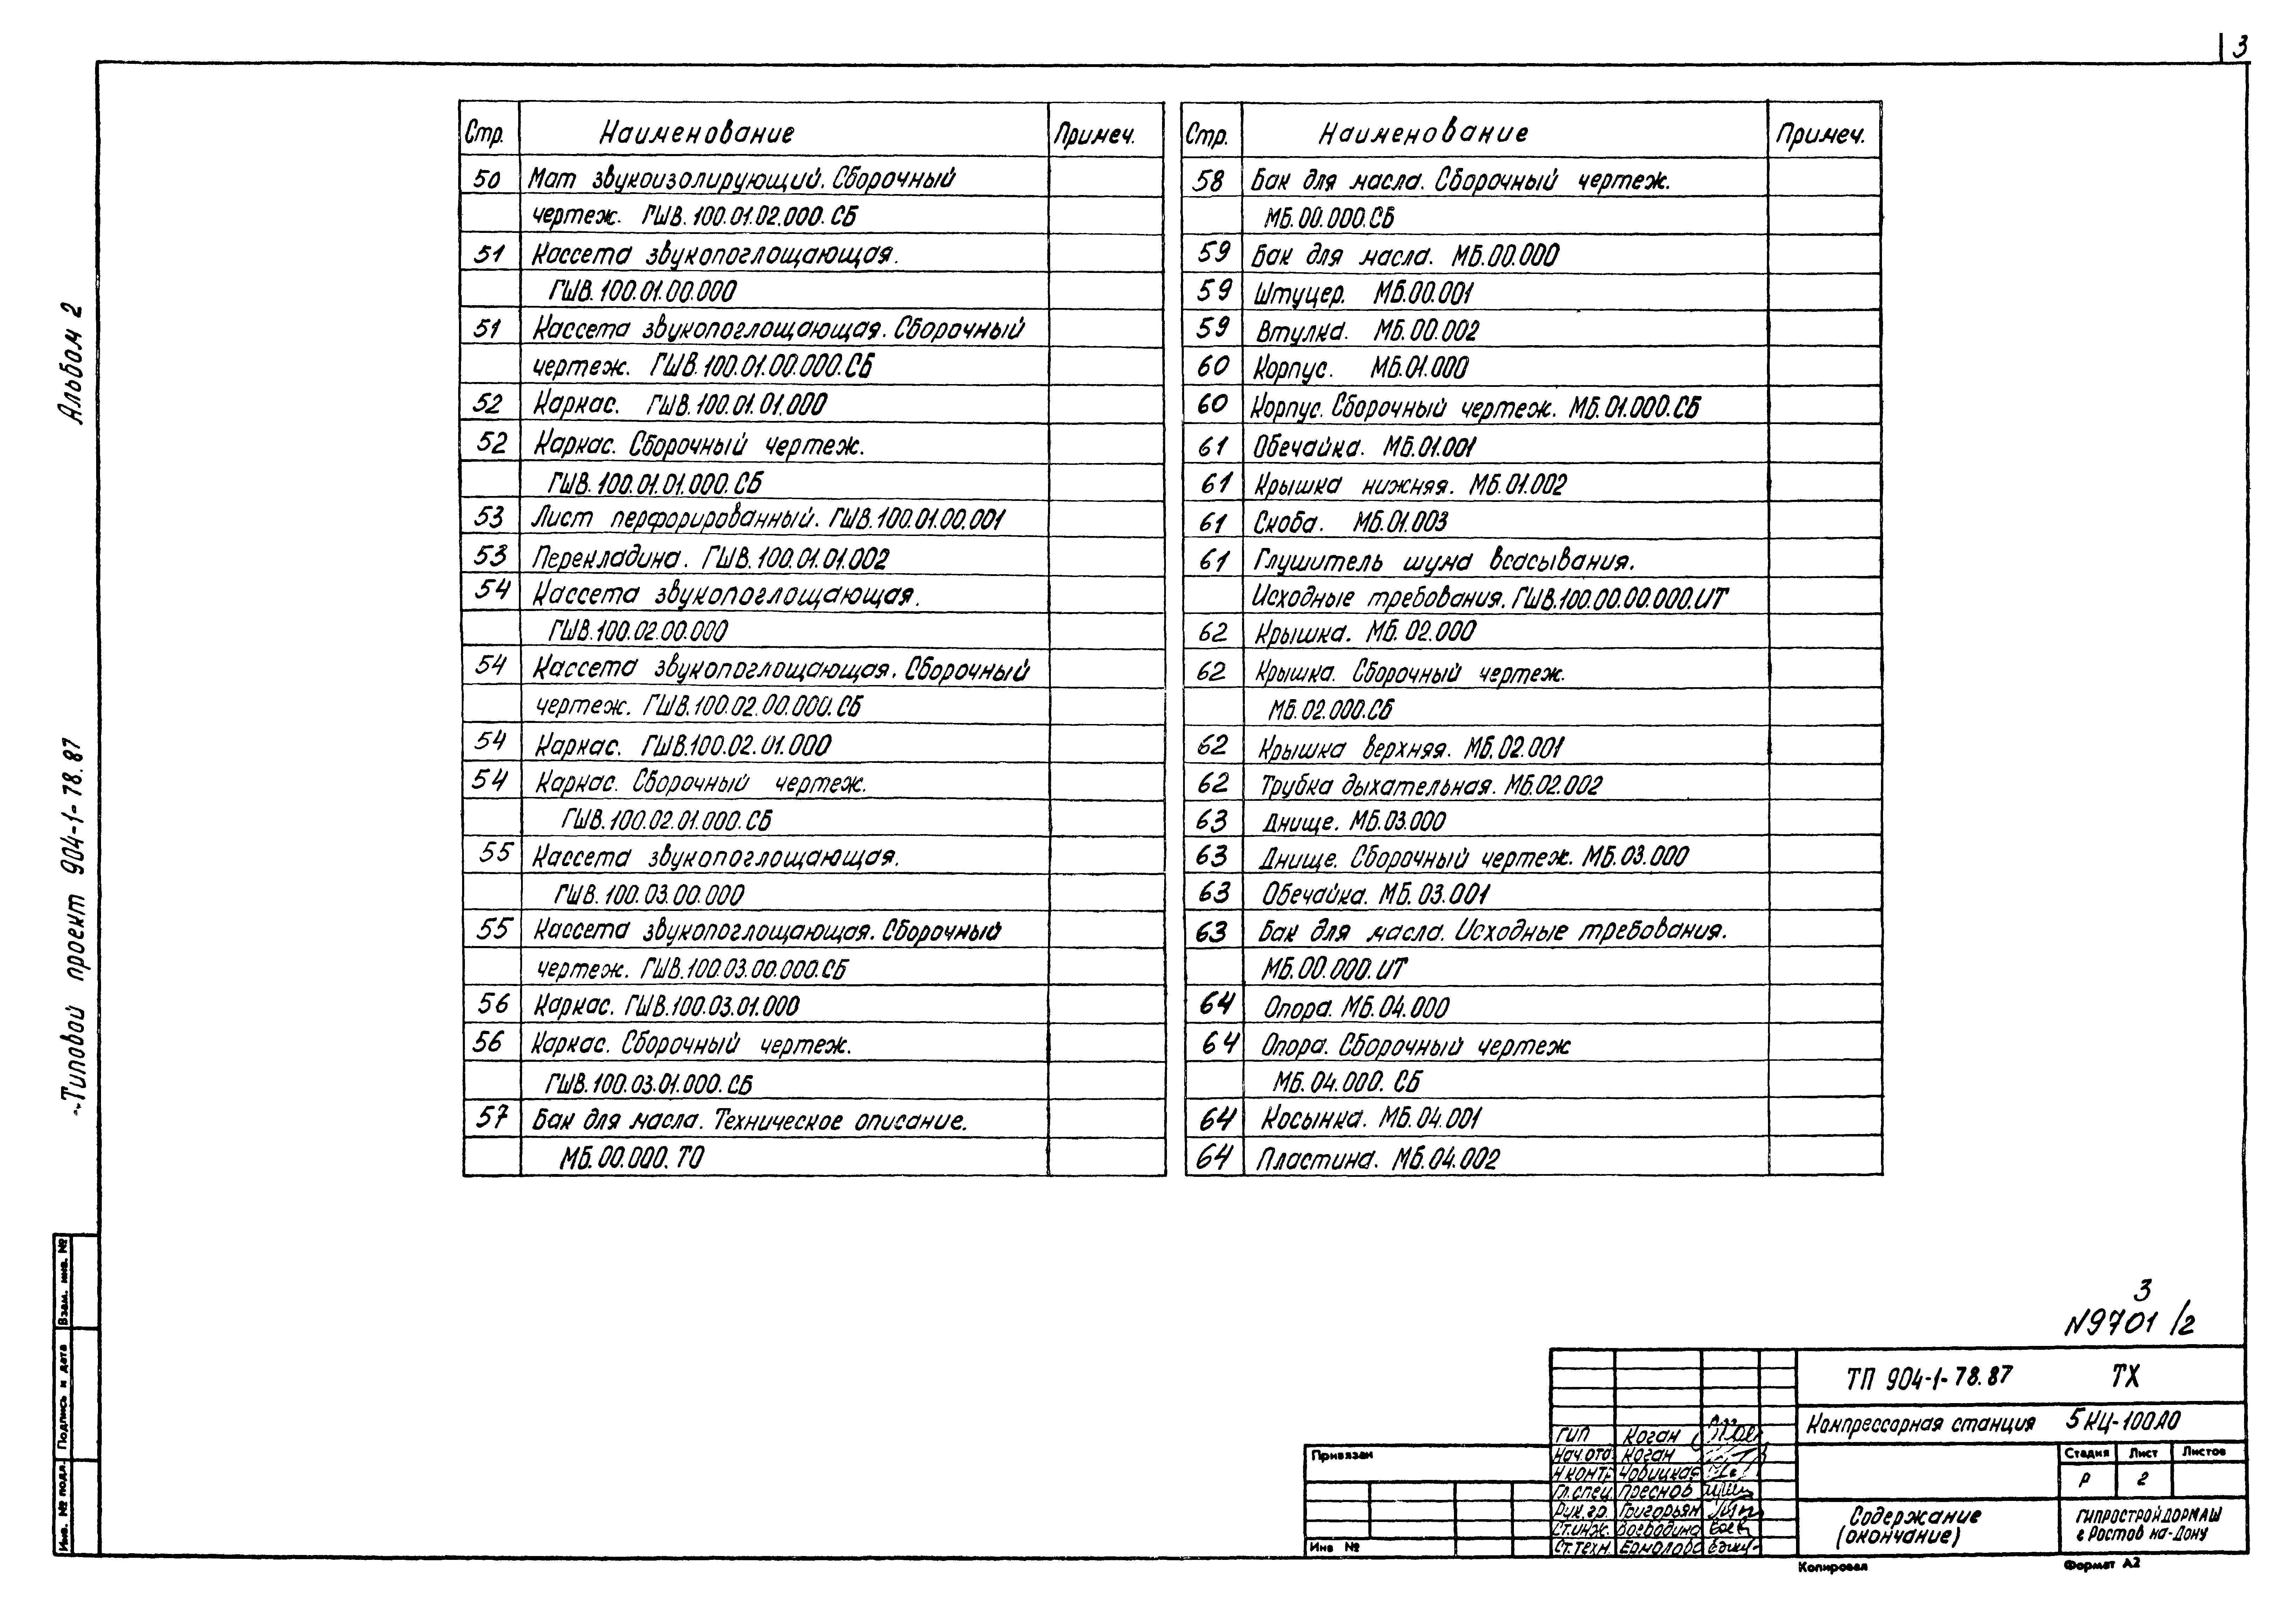 3
Альбом 2
Типовой проект 904-1-78.87
Стр. Наименование Примеч.
50 Мат звукоизолирующий. Сборочный
чертеж. ГШВ.100.01.02.000.СБ
51 Кассета звукопоглощающая.
ГШВ.100.01.00.000
51 Кассета звукопоглощающая. Сборочный
чертеж. ГШВ.100.01.00.000.СБ
52 Каркас. ГШВ.100.01.01.000
52 Каркас. Сборочный чертеж.
ГШВ.100.01.01.000.СБ
53 Лист перфорированный. ГШВ.100.01.00.001
53 Перекладина. ГШВ.100.01.01.002
54 Кассета звукопоглощающая.
ГШВ.100.02.00.000
54 Кассета звукопоглощающая. Сборочный
чертеж. ГШВ.100.02.00.000.СБ
54 Каркас. ГШВ.100.02.01.000
54 Каркас. Сборочный чертеж.
ГШВ.100.02.01.000.СБ
55 Кассета звукопоглощающая.
ГШВ.100.03.00.000
55 Кассета звукопоглощающая. Сборочный
чертеж. ГШВ.100.03.00.000.СБ
56 Каркас. ГШВ.100.03.01.000
56 Каркас. Сборочный чертеж.
ГШВ.100.03.01.000.СБ
57 Бак для масла. Техническое описание.
МБ.00.000.ТО
Стр. Наименование Примеч.
58 Бак для масла. Сборочный чертеж.
МБ.00.000.СБ
59 Бак для масла. МБ.00.000
59 Штуцер. МБ.00.001
59 Втулка. МБ.00.002
60 Корпус. МБ.01.000
60 Корпус. Сборочный чертеж. МБ.01.000.СБ
61 Обечайка. МБ.01.001
61 Крышка нижняя. МБ.01.002
61 Скоба. МБ.01.003
61 Глушитель шума всасывания.
Исходные требования. ГШВ.100.00.00.000.ИТ
62 Крышка. МБ.02.000
62 Крышка. Сборочный чертеж.
МБ.02.000.СБ
62 Крышка верхняя. МБ.02.001
62 Трубка дыхательная. МБ.02.002
63 Днище. МБ.03.000
63 Днище. Сборочный чертеж. МБ.03.000
63 Обечайка. МБ.03.001
63 Бак для масла. Исходные требования.
МБ.00.000.ИТ
64 Опора. МБ.04.000
64 Опора. Сборочный чертеж
МБ.04.000.СБ
64 Косынка. МБ.04.001
64 Пластина. МБ.04.002
Инв. № подл. Подпись и дата Взам. инв. №
3
N9701/2
ТП 904-1-78.87 ТХ
Компрессорная станция 5КЦ-100А0
Стадия Лист Листов
Р 2
Содержание
(окончание)
ГИПРОСТРОЙДОРМАШ
г Ростов на-Дону
ГИП Коган
Нач.отд. Коган
Н.контр. Новицкая
Гл.спец. Преснов
Рук.гр. Григорьян
Ст.инж. Воеводина
Ст.техн. Ермолова
Привязан
Инв №
Копировал
Формат А2